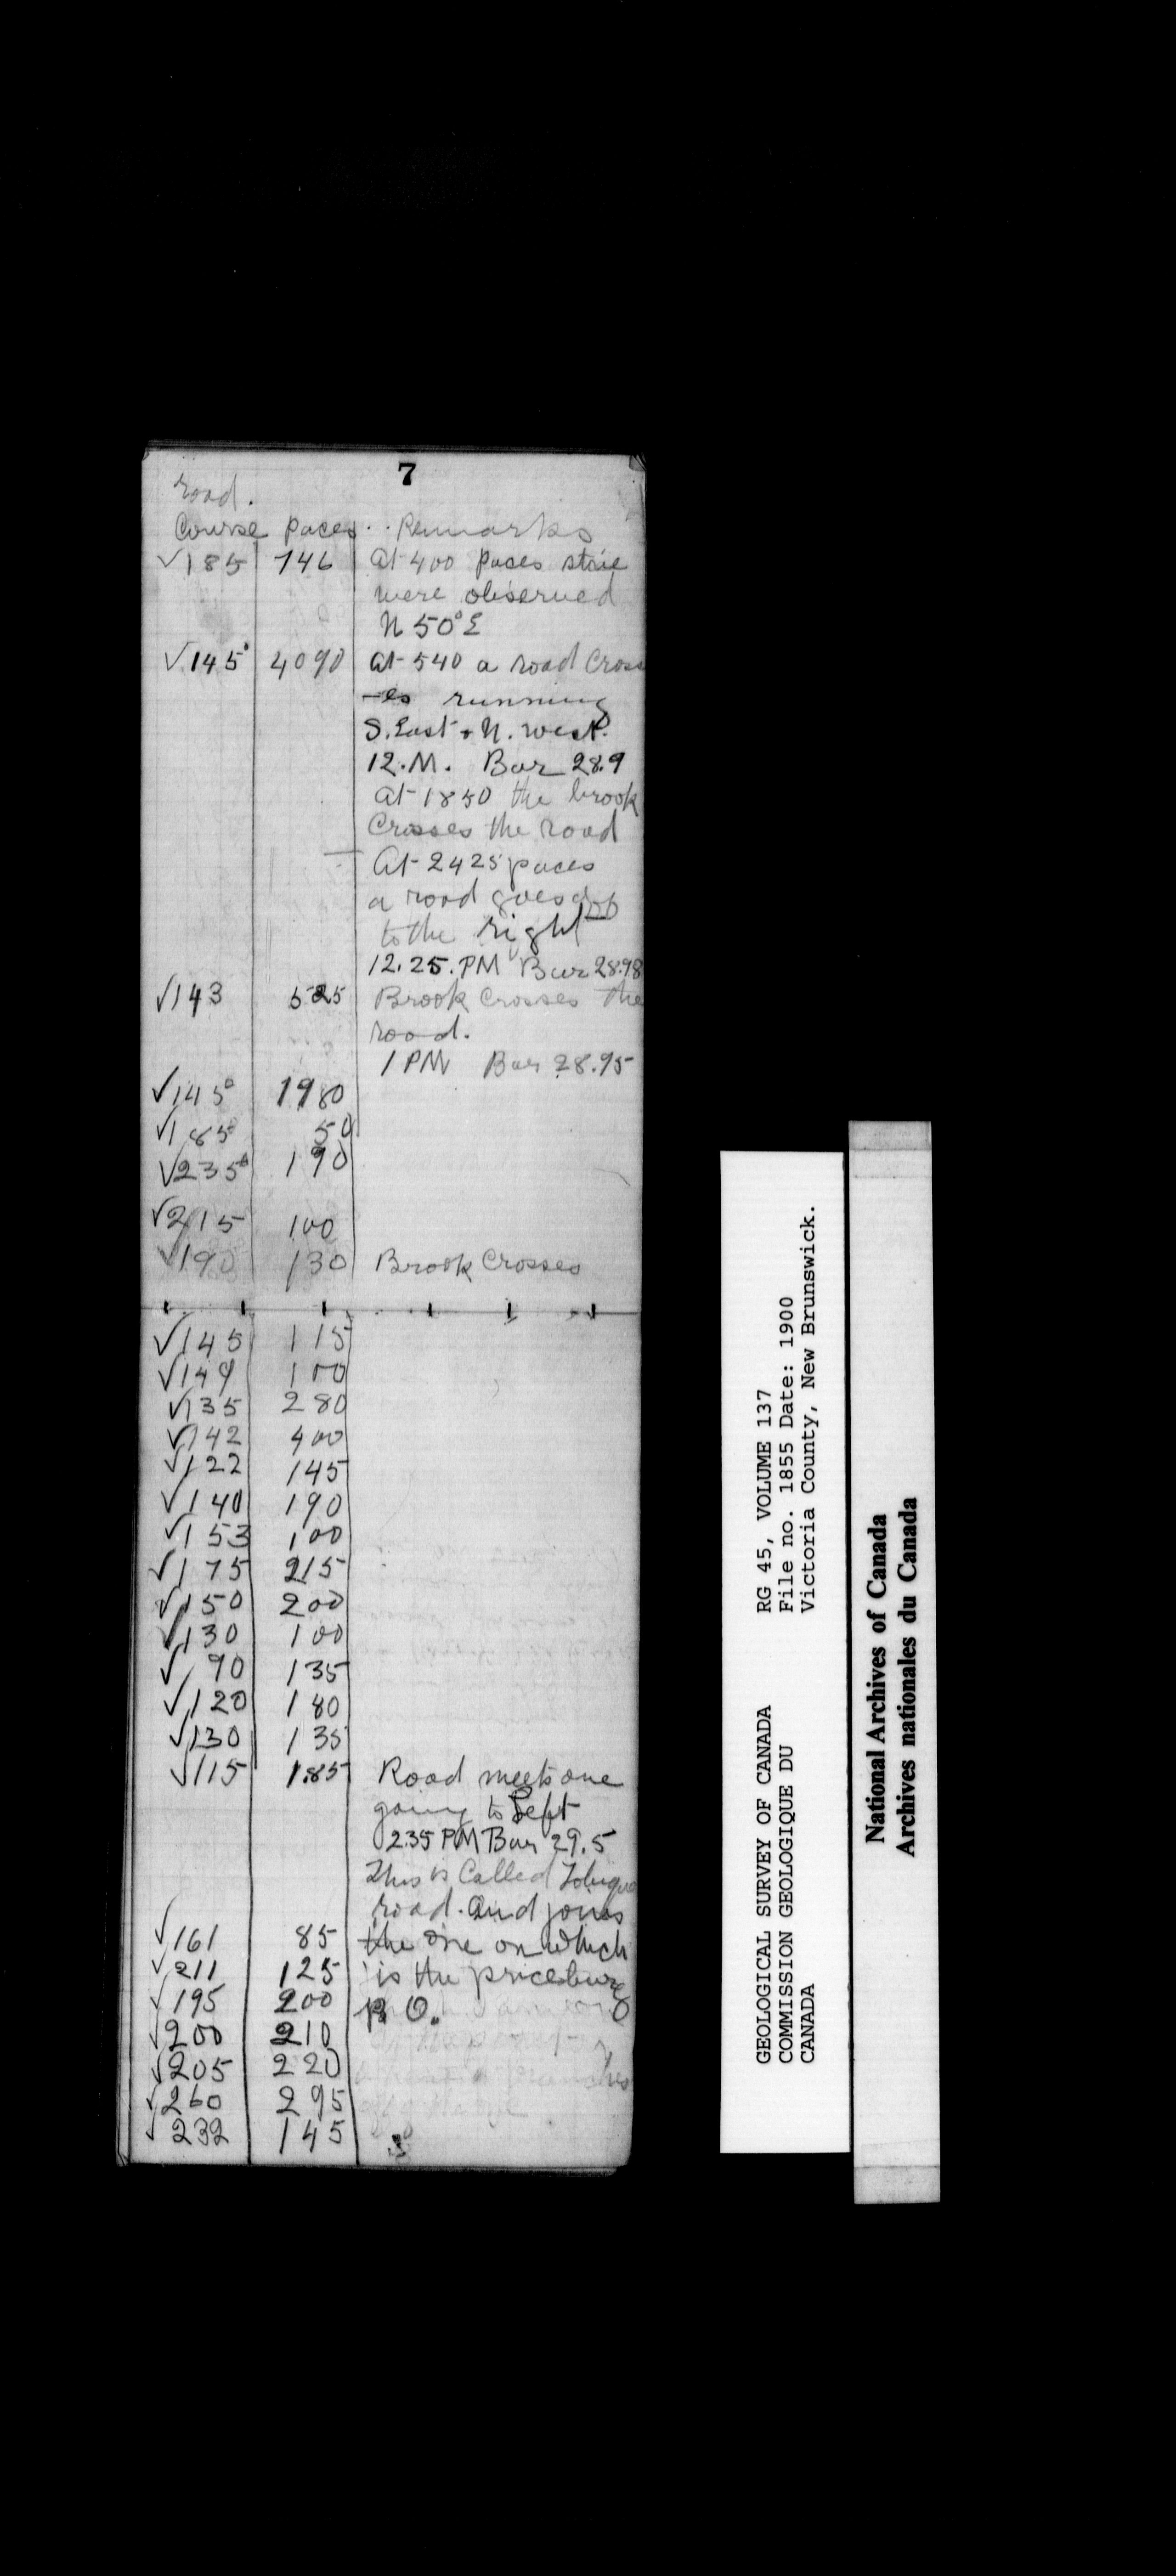 7
road.
Course paces Remarks
√185 746 at 400 paces striae
were observed
N 50° E
√145° 4090 at 540 a road cross
-es running
S. East + N. West.
12. M. Bar 28.9
at 1850 the brook
Crosses the road
At 2425 paces
a road goes off
to the right
12.25. PM Bar 28.98
√143 525 Brook Crosses the
road.
1 PM Bar 28.95
√145° 1980
√185° 50
√235° 190
√215 100
√190 130 Brook Crosses
√145 115
√149 100
√135 280
√142 400
√122 145
√140 190
√153 100
√175 215
√150 200
√130 100
√90 135
√120 180
√130 135
√115 185 Road meets one
going to Left
2.35 PM Bar 29.5
This is Called Tobique
road. And joins
√161 85 the one on which
√211 125 is the priceburg
√195 200 P. O.
√200 210
√205 220
√260 295
√232 145
GEOLOGICAL SURVEY OF CANADA RG 45, VOLUME 137
COMMISSION GEOLOGIQUE DU File no. 1855 Date: 1900
CANADA Victoria County, New Brunswick.
National Archives of Canada
Archives nationales du Canada